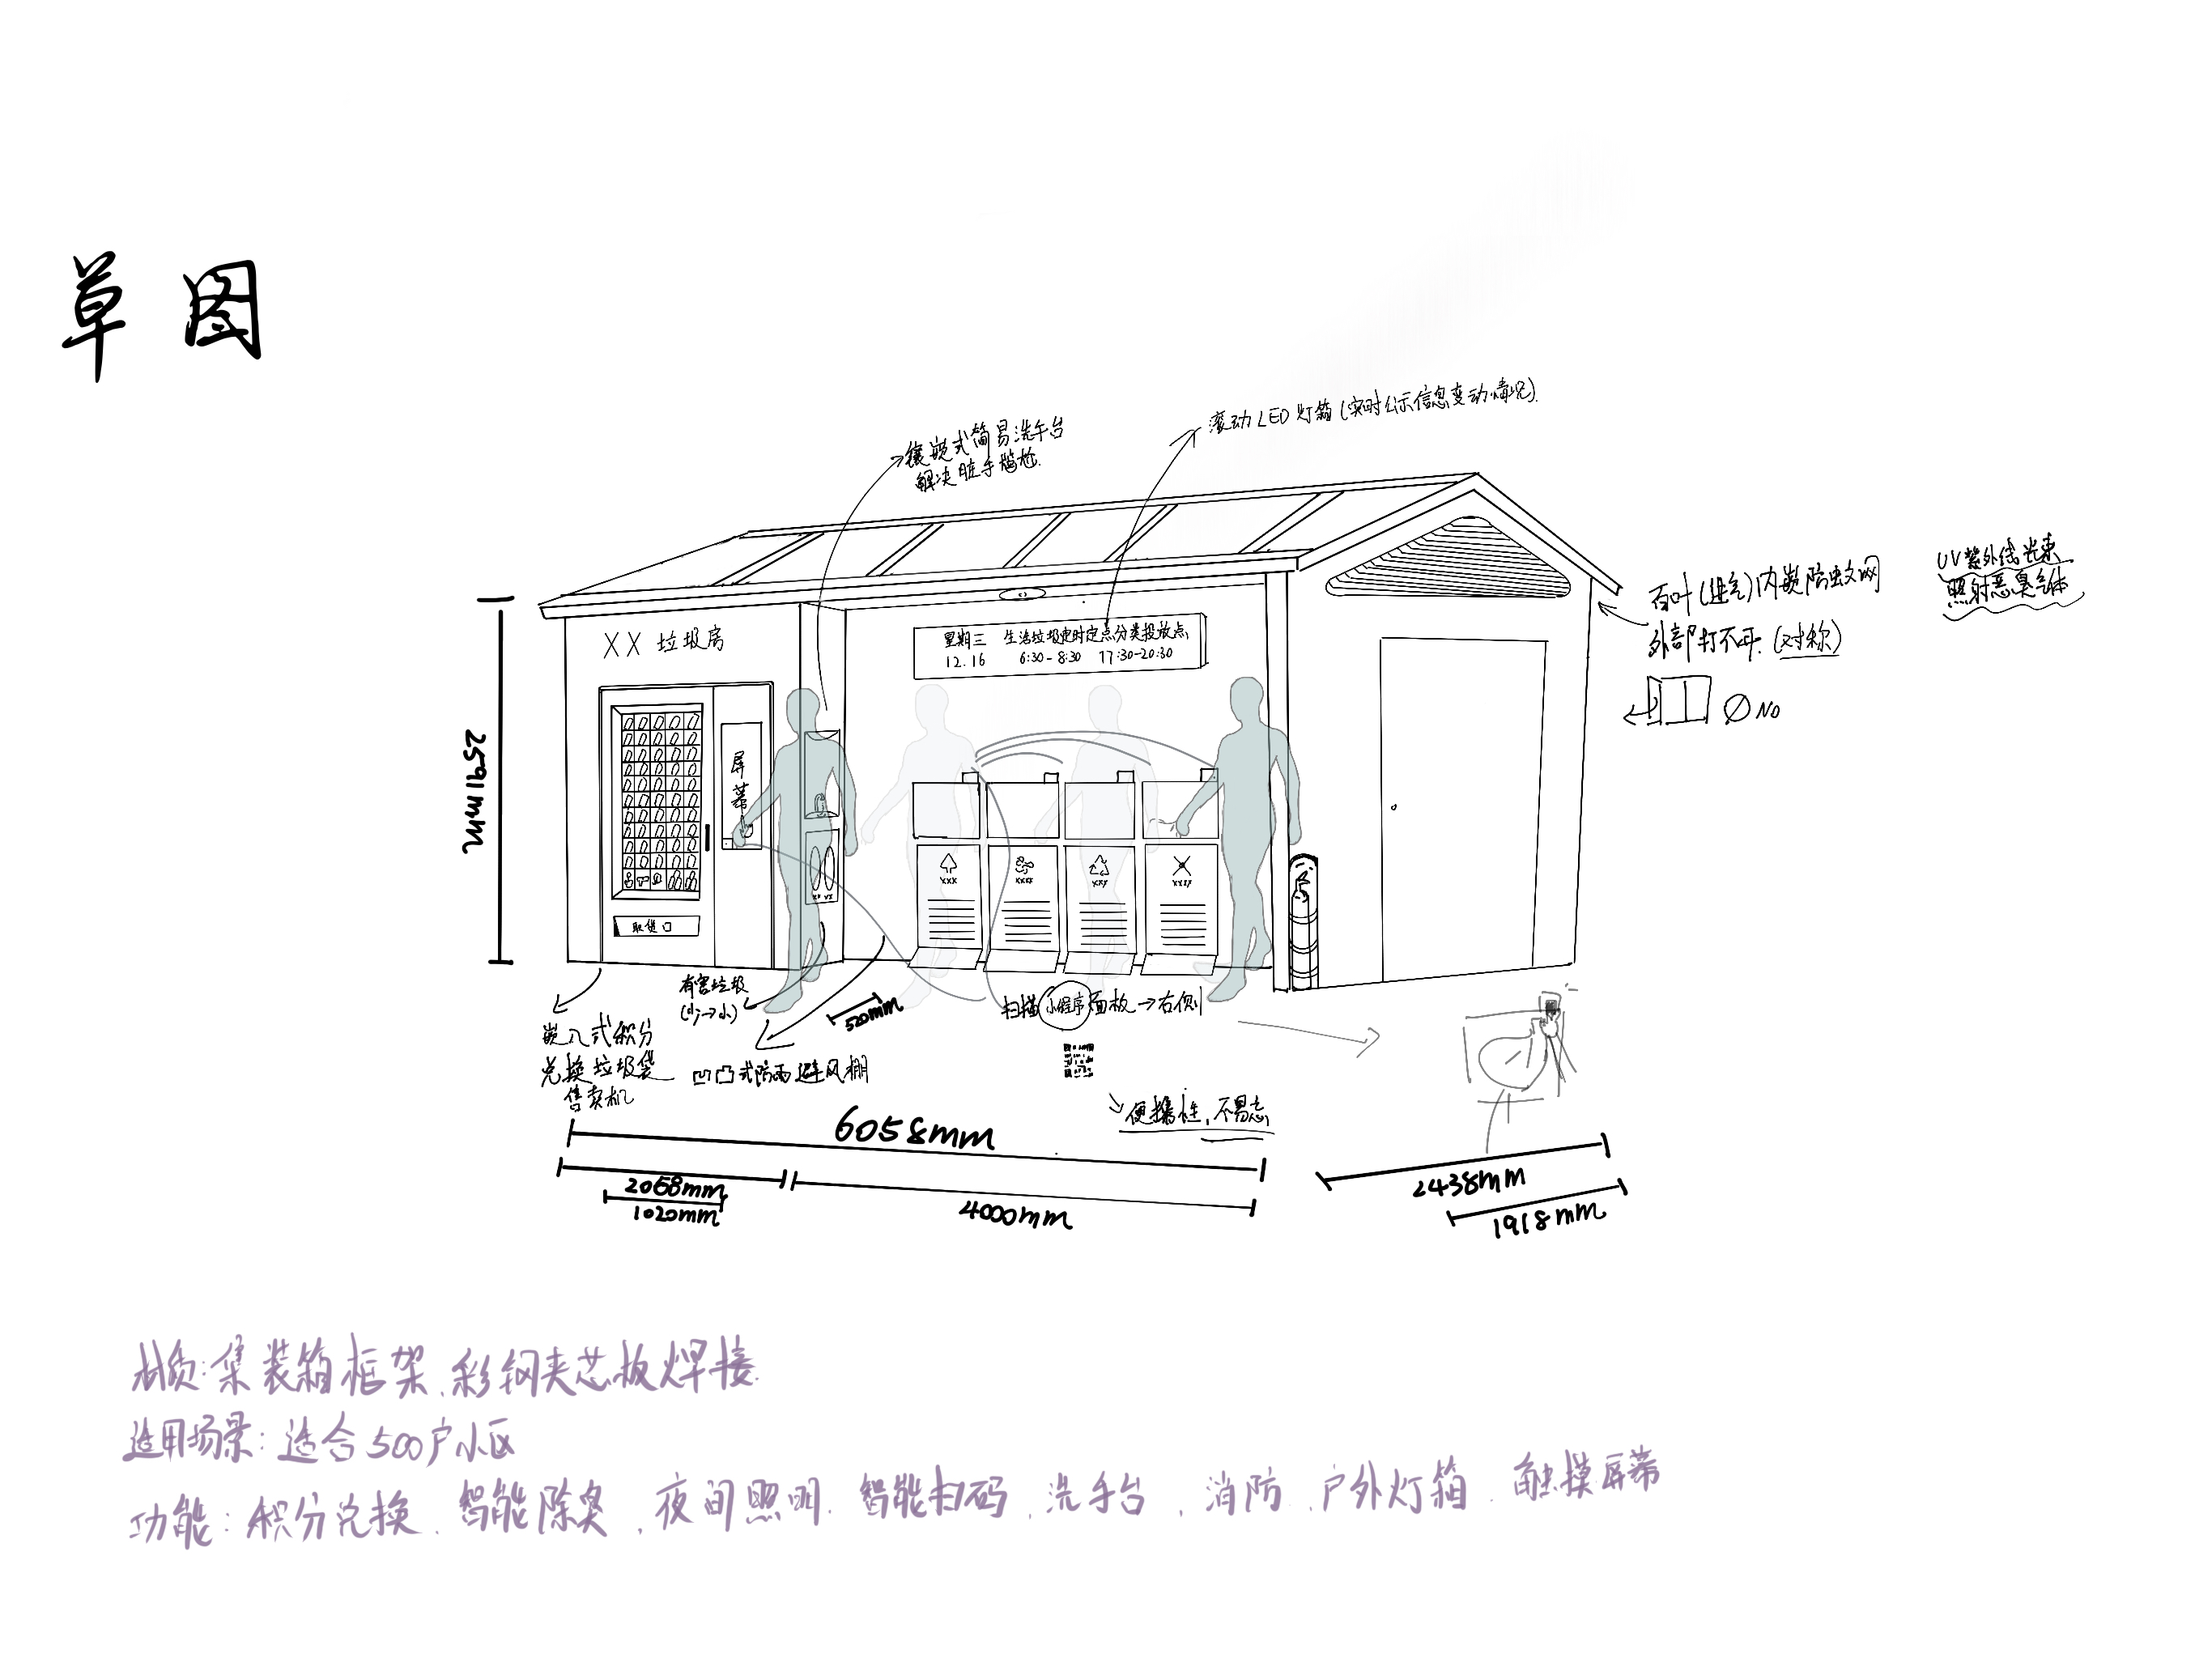 草图
镶嵌式简易洗手台
解决脏手尴尬.
滚动LED灯箱(实时公示信息变动情况).
UV紫外线光束
照射恶臭气体
百叶(进气)内嵌防蚊网
外部打不开.(对称)
NO
XX 垃圾房
星期三 生活垃圾定时定点分类投放点
12.16 6:30-8:30 17:30-20:30
屏幕
取货口
XXX
XXXX
XXX
XXXX
XX XX
2591mm
有害垃圾
520mm
扫描小程序面板→右侧
嵌入式积分
兑换垃圾袋
售卖机
凹凸式防雨避风棚
便携性,不易忘
6058mm
2068mm
1020mm
4000mm
2438mm
1918mm
材质:集装箱框架、彩钢夹芯板焊接.
适用场景:适合500户小区
功能:积分兑换、智能除臭、夜间照明、智能扫码、洗手台、消防、户外灯箱、触摸屏幕